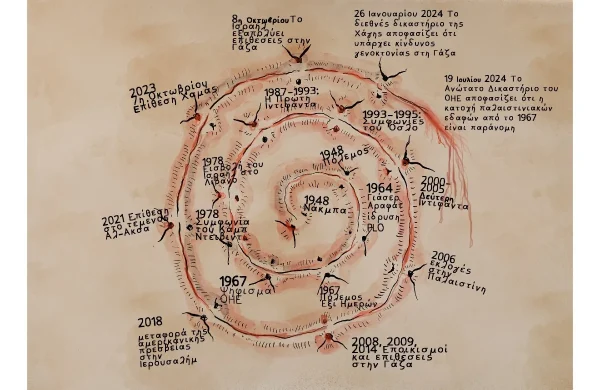 8η Οκτωβρίου Το
Ισραήλ
εξαπολύει
επιθέσεις στην
Γάζα
26 Ιανουαρίου 2024 Το
διεθνές δικαστήριο της
Χάγης αποφασίζει ότι
υπάρχει κίνδυνος
γενοκτονίας στη Γάζα
19 Ιουλίου 2024 Το
Ανώτατο Δικαστήριο του
ΟΗΕ αποφασίζει ότι η
κατοχή παλαιστινιακών
εδαφών από το 1967
είναι παράνομη
2023
7η Οκτωβρίου
Επίθεση Χαμάς
1987-1993:
Η Πρώτη
Ιντιφάντα
1993-1995:
Συμφωνίες
του Όσλο
1948
Πόλεμος
1978
Εισβολή του
Ισραήλ στο
Λίβανο
1948
Νάκμπα
1964
Γιάσερ
Αραφάτ
ίδρυση
PLO
2000-
2005
Δεύτερη
Ιντιφάντα
2021 Επίθεση
στο τέμενος
Αλ-Ακσα
1978
Συμφωνία
του Καμπ
Ντέιβιντ
2006
εκλογές
στην
Παλαιστίνη
1967
Ψήφισμα
ΟΗΕ
1967
Πόλεμος
Έξι Ημερών
2018
μεταφορά της
αμερικάνικης
πρεσβείας
στην
Ιερουσαλήμ
2008, 2009,
2014 Εποικισμοί
και επιθέσεις
στην Γάζα